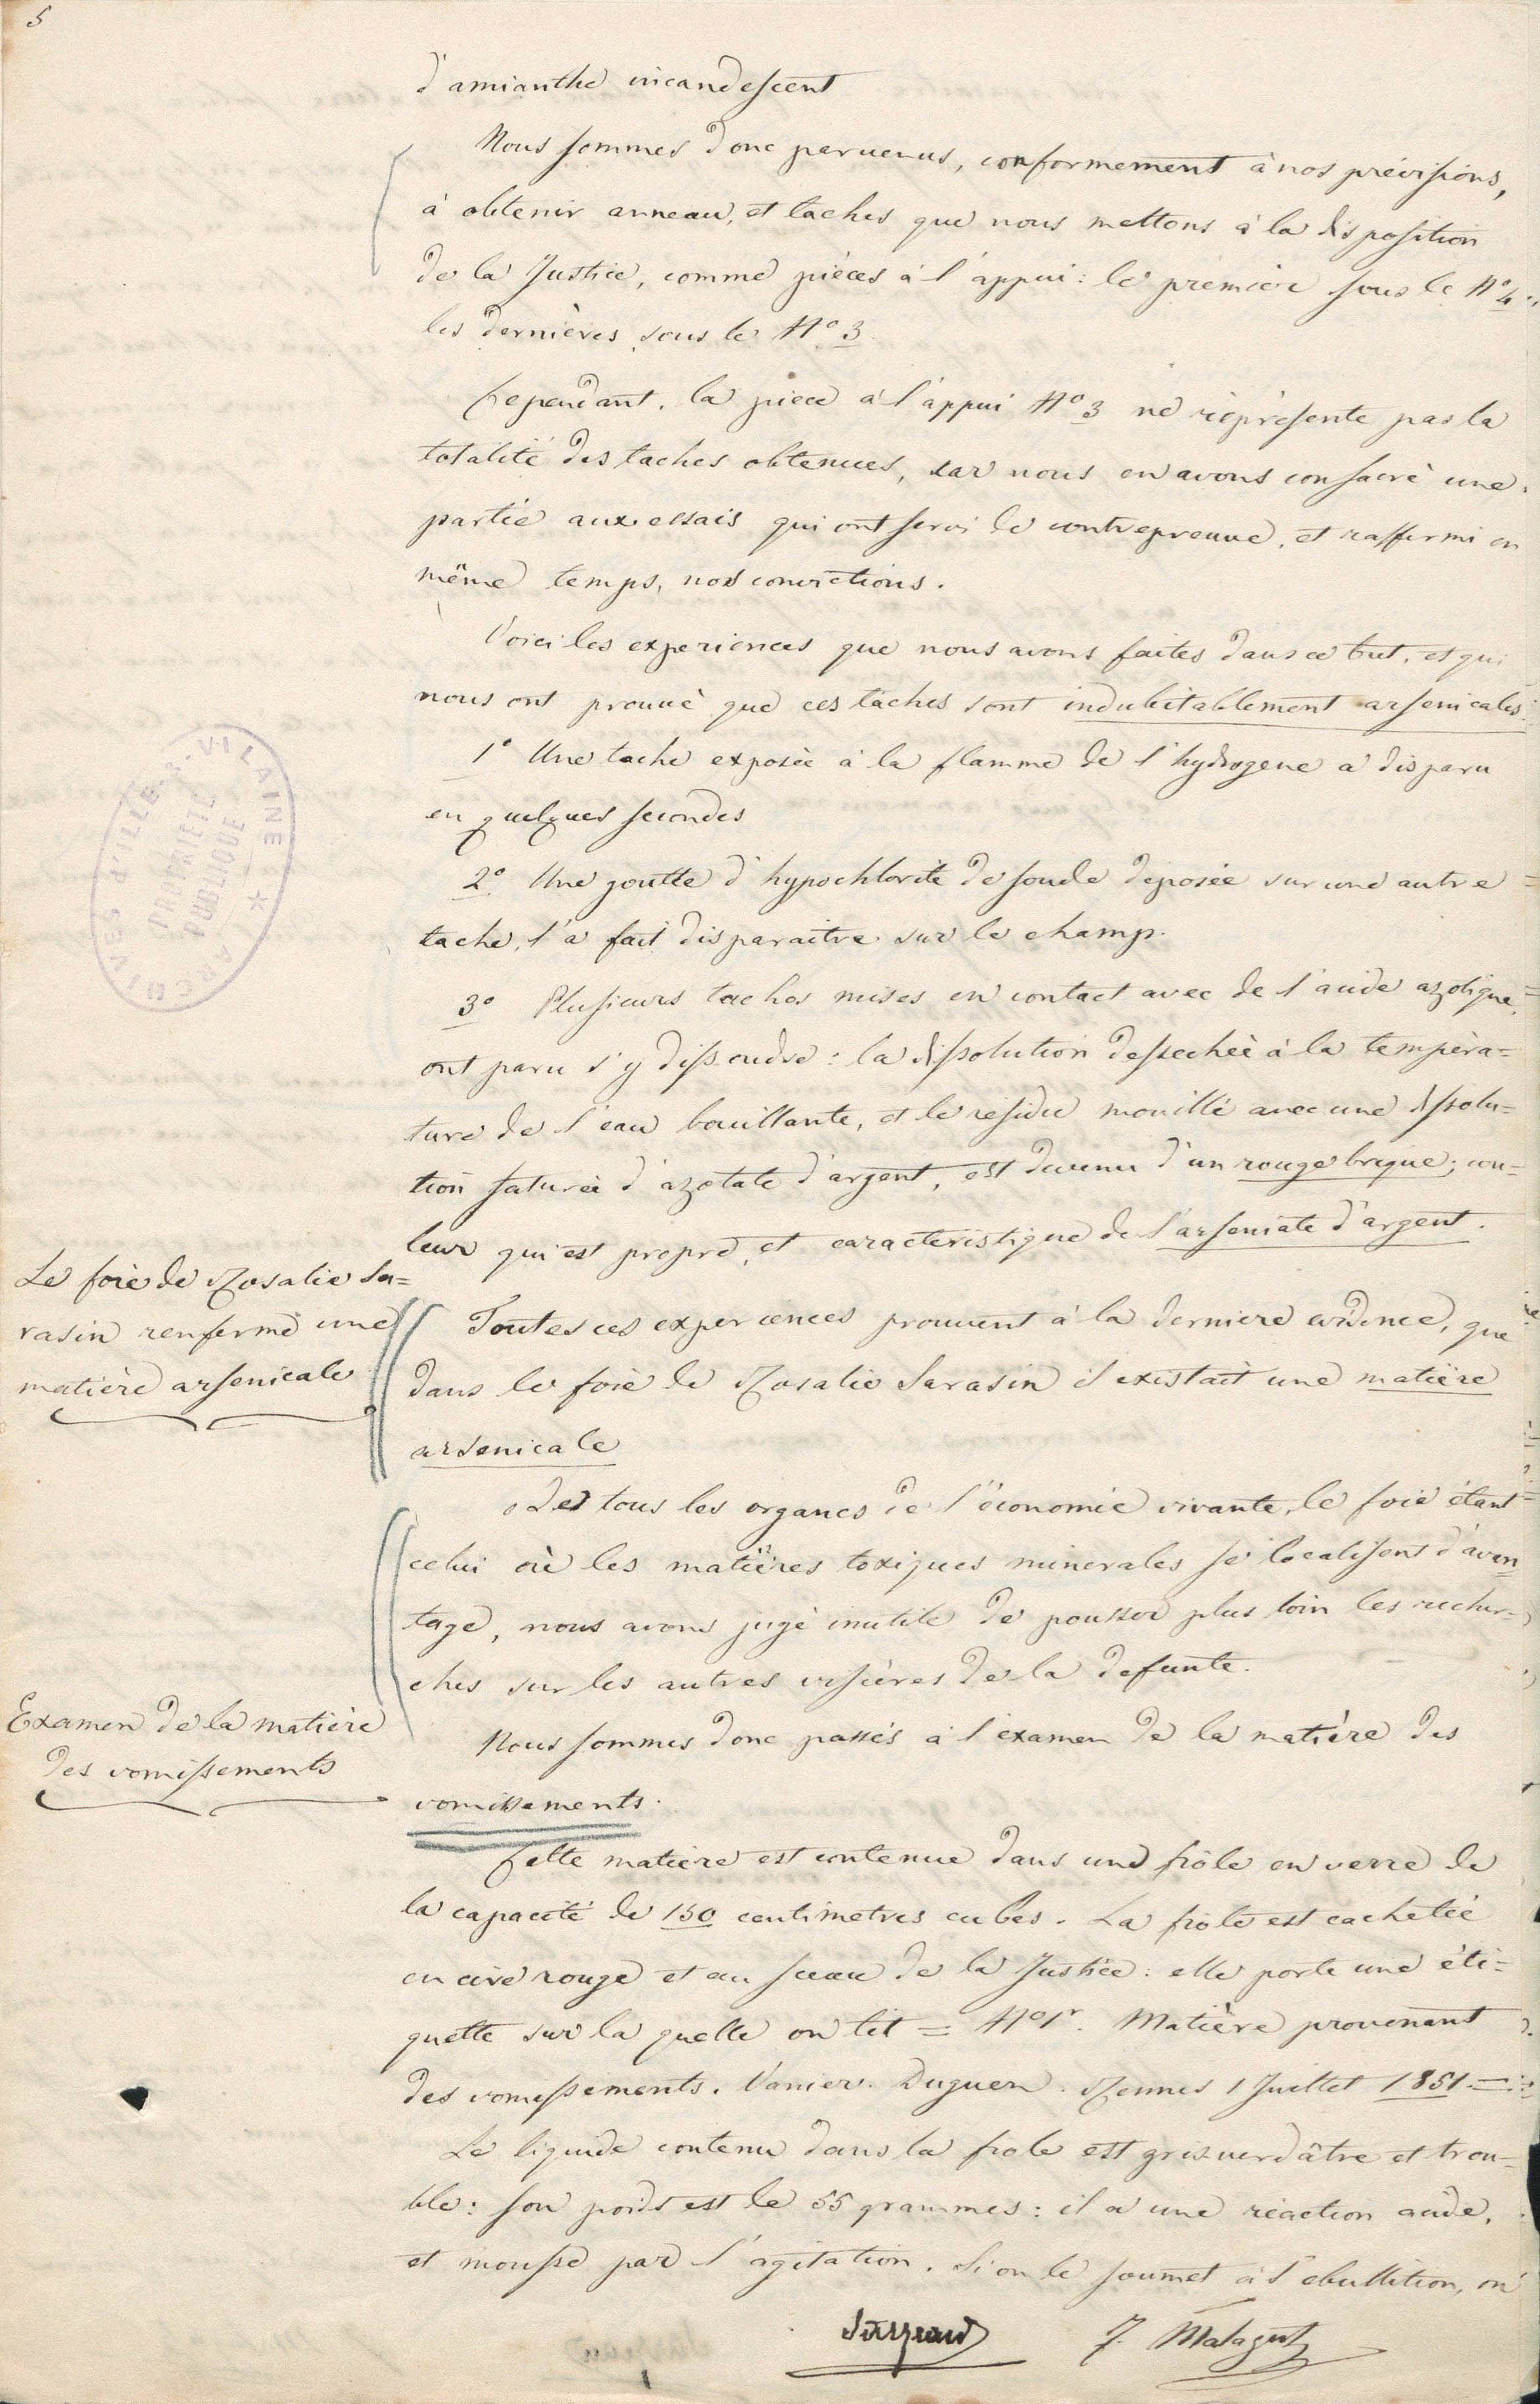 5
d'amianthe incandescent
Nous sommes donc parvenus, conformement à nos prévisions,
à obtenir anneau, et taches que nous mettons à la disposition
de la Justice, comme pièces à l'appui: le premier sous le N° 4:
les dernières sous le N° 3
Cependant, la piece à l'appui N° 3 ne représente pas la
totalité des taches obtenues, car nous en avons consacré une
partie aux essais qui ont servi de contrepreuve, et raffermi en
même temps, nos convictions.
Voici les experiences que nous avons faites dans ce but, et qui
nous ont prouvé que ces taches sont indubitablement arsenicales.
1° Une tache exposée à la flamme de l'hydrogene a disparu
en quelques secondes
2° Une goutte d'hypochlorite de soude déposée sur une autre
tache, l'a fait disparaître sur le champ.
3° Plusieurs taches mises en contact avec de l'acide azotique,
ont paru s'y dissoudre: la dissolution dessechée à la tempéra=
ture de l'eau bouillante, et le residu mouillé avec une dissolu=
tion saturée d'azotate d'argent, est devenu d'un rouge brique; cou=
leur qui est propre, et caracteristique de l'arseniate d'argent.
Le foie de Rosalie Sa=
rasin renferme une
matière arsenicale
Toutes ces experiences prouvent à la derniere evidence, que
dans le foie de Rosalie Sarasin il existait une matière
arsenicale
De tous les organes de l'économie vivante, le foie étant
celui où les matières toxiques minerales se localisent d'avan
tage, nous avons jugé inutile de pousser plus loin les recher=
ches sur les autres viscères de la defunte.
Examen de la matière
des vomissements
Nous sommes donc passés à l'examen de la matière des
vomissements.
Cette matière est contenue dans une fiole en verre de
la capacité de 150 centimetres cubes. La fiole est cachetée
en cire rouge et au sceau de la Justice: elle porte une éti=
quette sur la quelle on lit = N° 1r. Matière provenant
des vomissements. Vanier. Duguen. Rennes 1 Juillet 1851. =
Le liquide contenu dans la fiole est gris verdâtre et trou=
ble: son poids est de 55 grammes: il a une réaction acide,
et mousse par l'agitation. Si on le soumet à l'ebullition, on
Sarzeaud J. Malaguti
ARCHIVES D'ILLE-&-VILAINE
PROPRIÉTÉ
PUBLIQUE